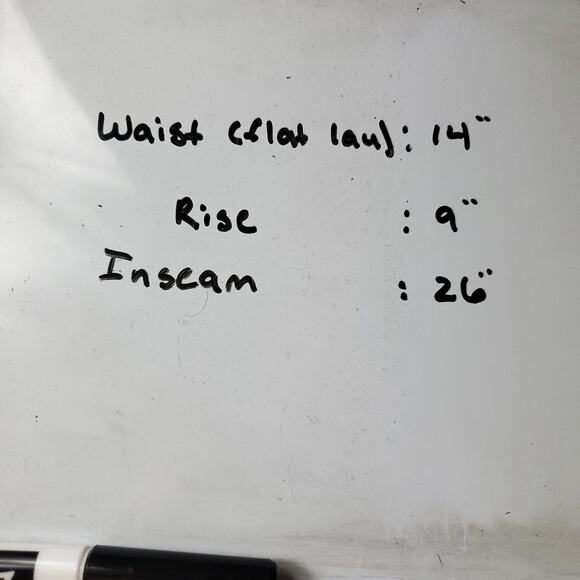 Waist (flat lay): 14"
Rise : 9"
Inseam : 26"